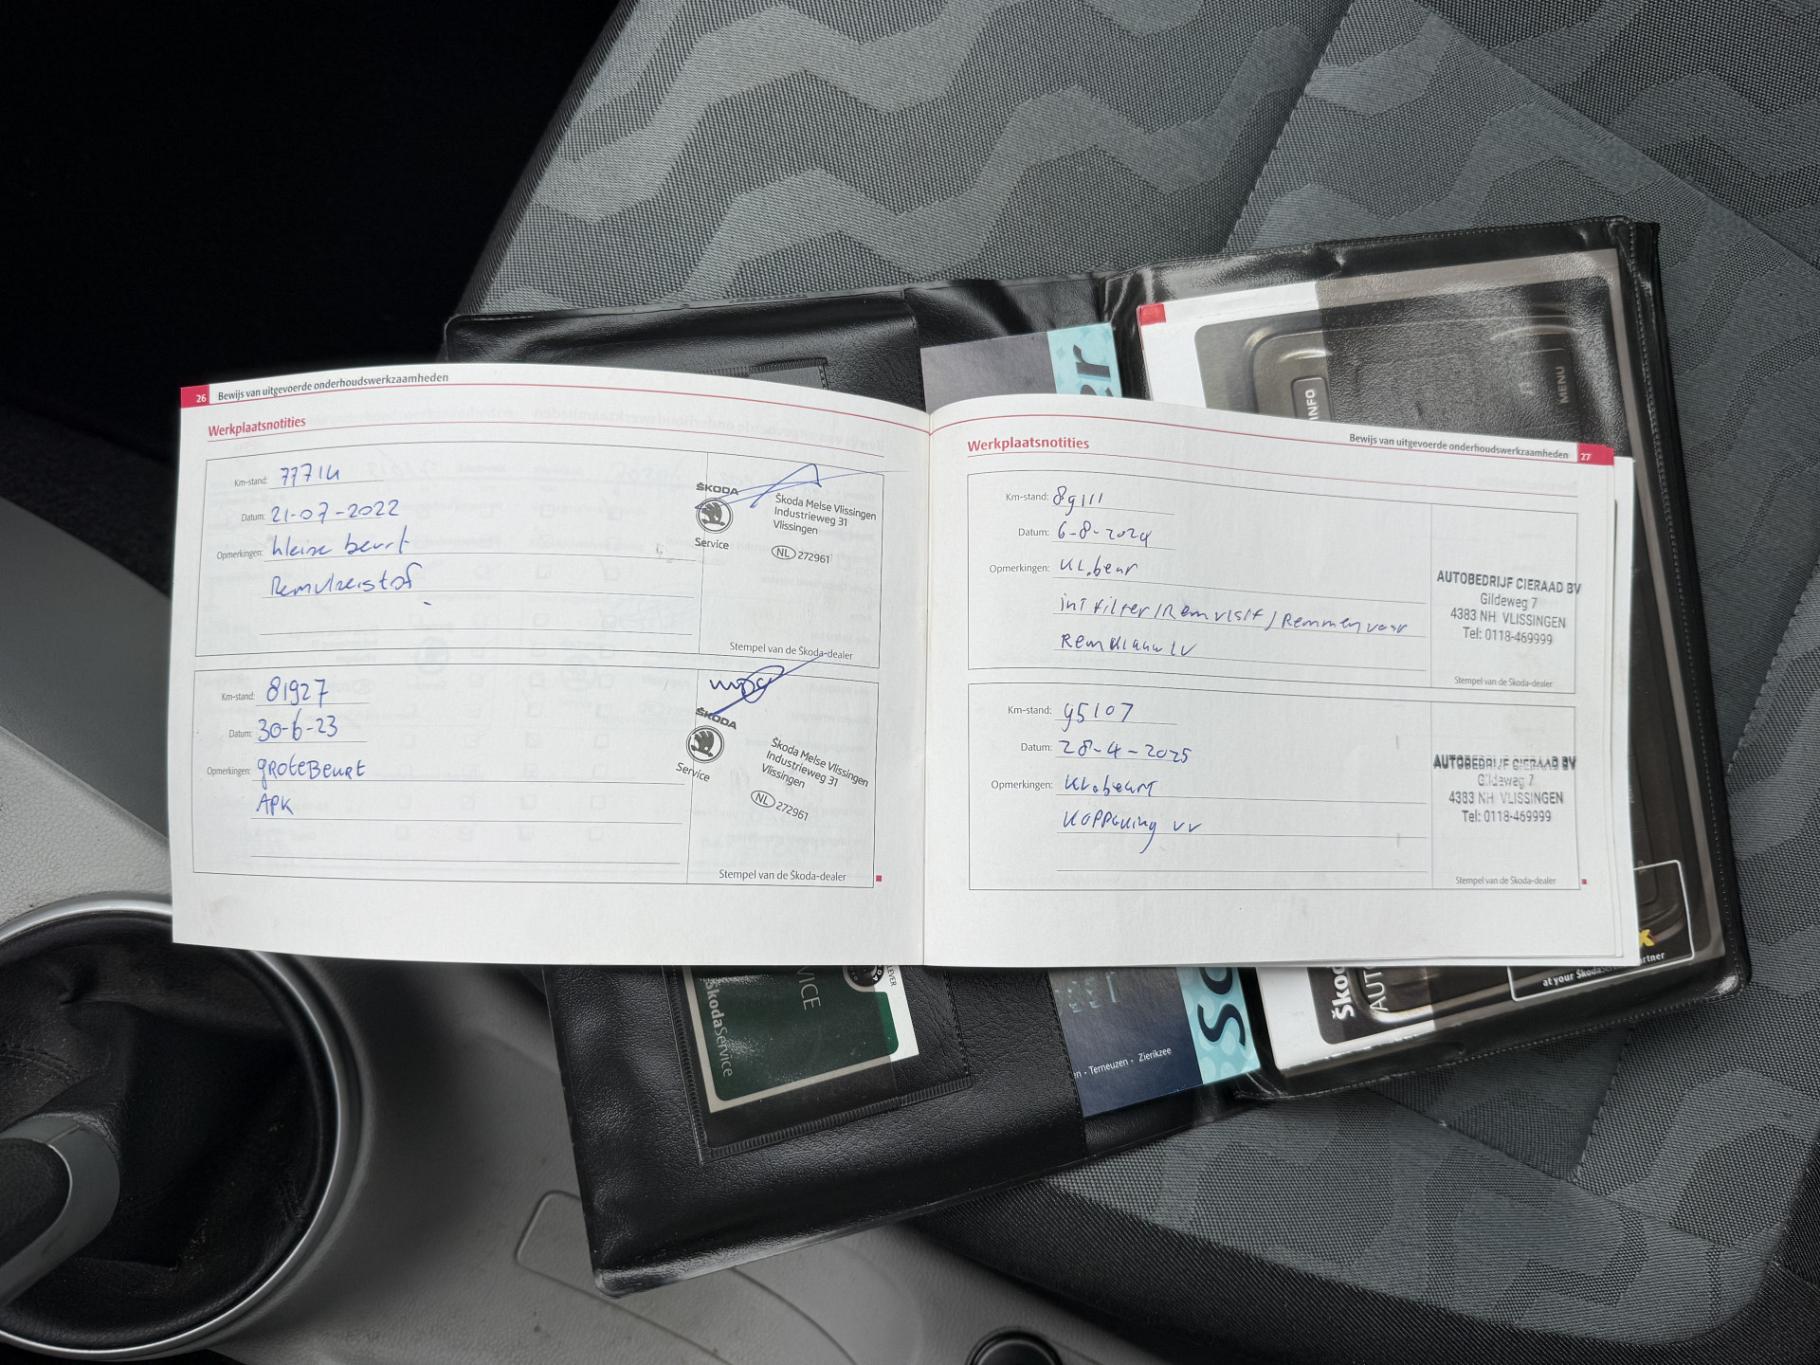 26 Bewijs van uitgevoerde onderhoudswerkzaamheden
Werkplaatsnotities
Km-stand: 77714
Datum: 21-07-2022
Opmerkingen: kleine beurt
Remvloeistof
ŠKODA
Service
Škoda Melse Vlissingen
Industrieweg 31
Vlissingen
NL 272961
Stempel van de Škoda-dealer
Km-stand: 81927
Datum: 30-6-23
Opmerkingen: groteBeurt
APK
ŠKODA
Service
Škoda Melse Vlissingen
Industrieweg 31
Vlissingen
NL 272961
Stempel van de Škoda-dealer
Bewijs van uitgevoerde onderhoudswerkzaamheden 27
Werkplaatsnotities
Km-stand: 89111
Datum: 6-8-2024
Opmerkingen: KL.beur
int filter/Remvlstf/Remmen voor
Remklauw LV
AUTOBEDRIJF CIERAAD BV
Gildeweg 7
4383 NH VLISSINGEN
Tel: 0118-469999
Stempel van de Škoda-dealer
Km-stand: 95107
Datum: 28-4-2025
Opmerkingen: KL.beurt
Koppeling vv
AUTOBEDRIJF CIERAAD BV
Gildeweg 7
4383 NH VLISSINGEN
Tel: 0118-469999
Stempel van de Škoda-dealer
INFO
MENU
ŠkodaService
VICE
n - Terneuzen - Zierikzee
Ško
AUT
at your Škoda
rtner